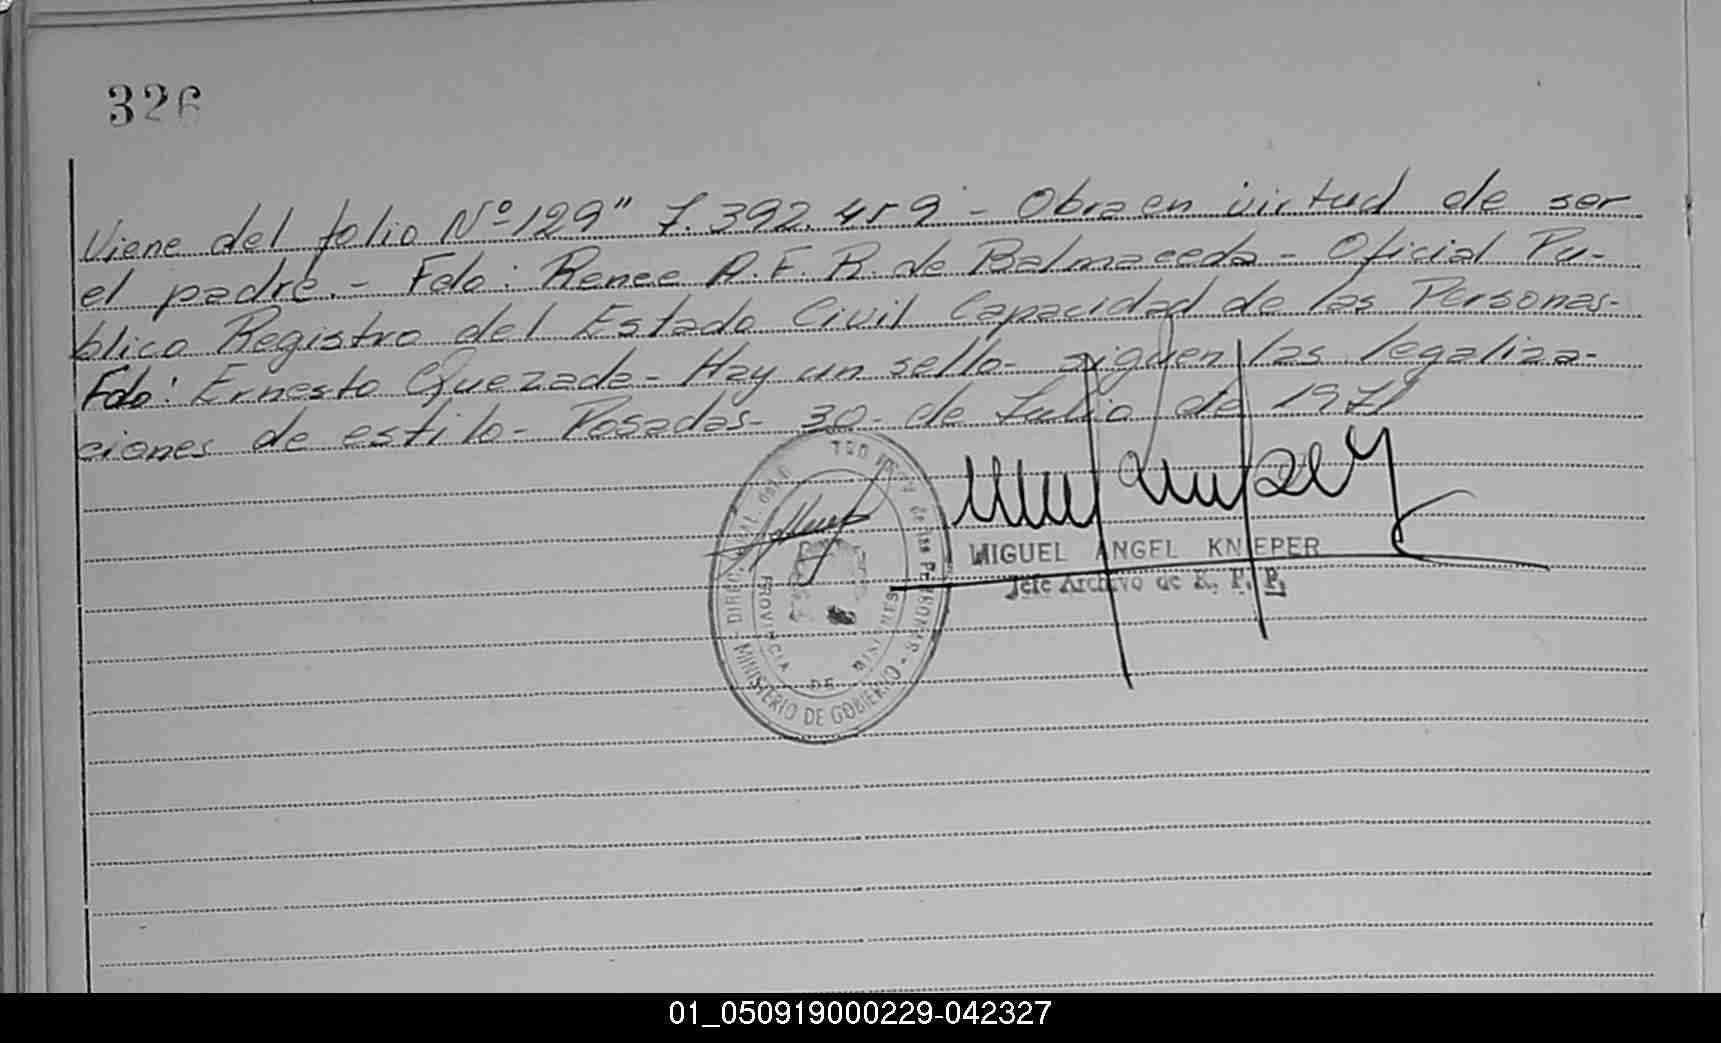 326
Viene del folio Nº 129" 7.392.459 - Obra en virtud de ser
el padre.- Fdo: Renee A.F.R. de Balmaceda - Oficial Pu-
blico Registro del Estado Civil Capacidad de las Personas.-
Fdo: Ernesto Quezada - Hay un sello - siguen las legaliza-
ciones de estilo - Posadas - 30 - de Julio de 1971
MIGUEL ANGEL KNEPER
Jefe Archivo de R. P. P.
MINISTERIO DE GOBIERNO
PROVINCIA DE MISIONES
01_050919000229-042327